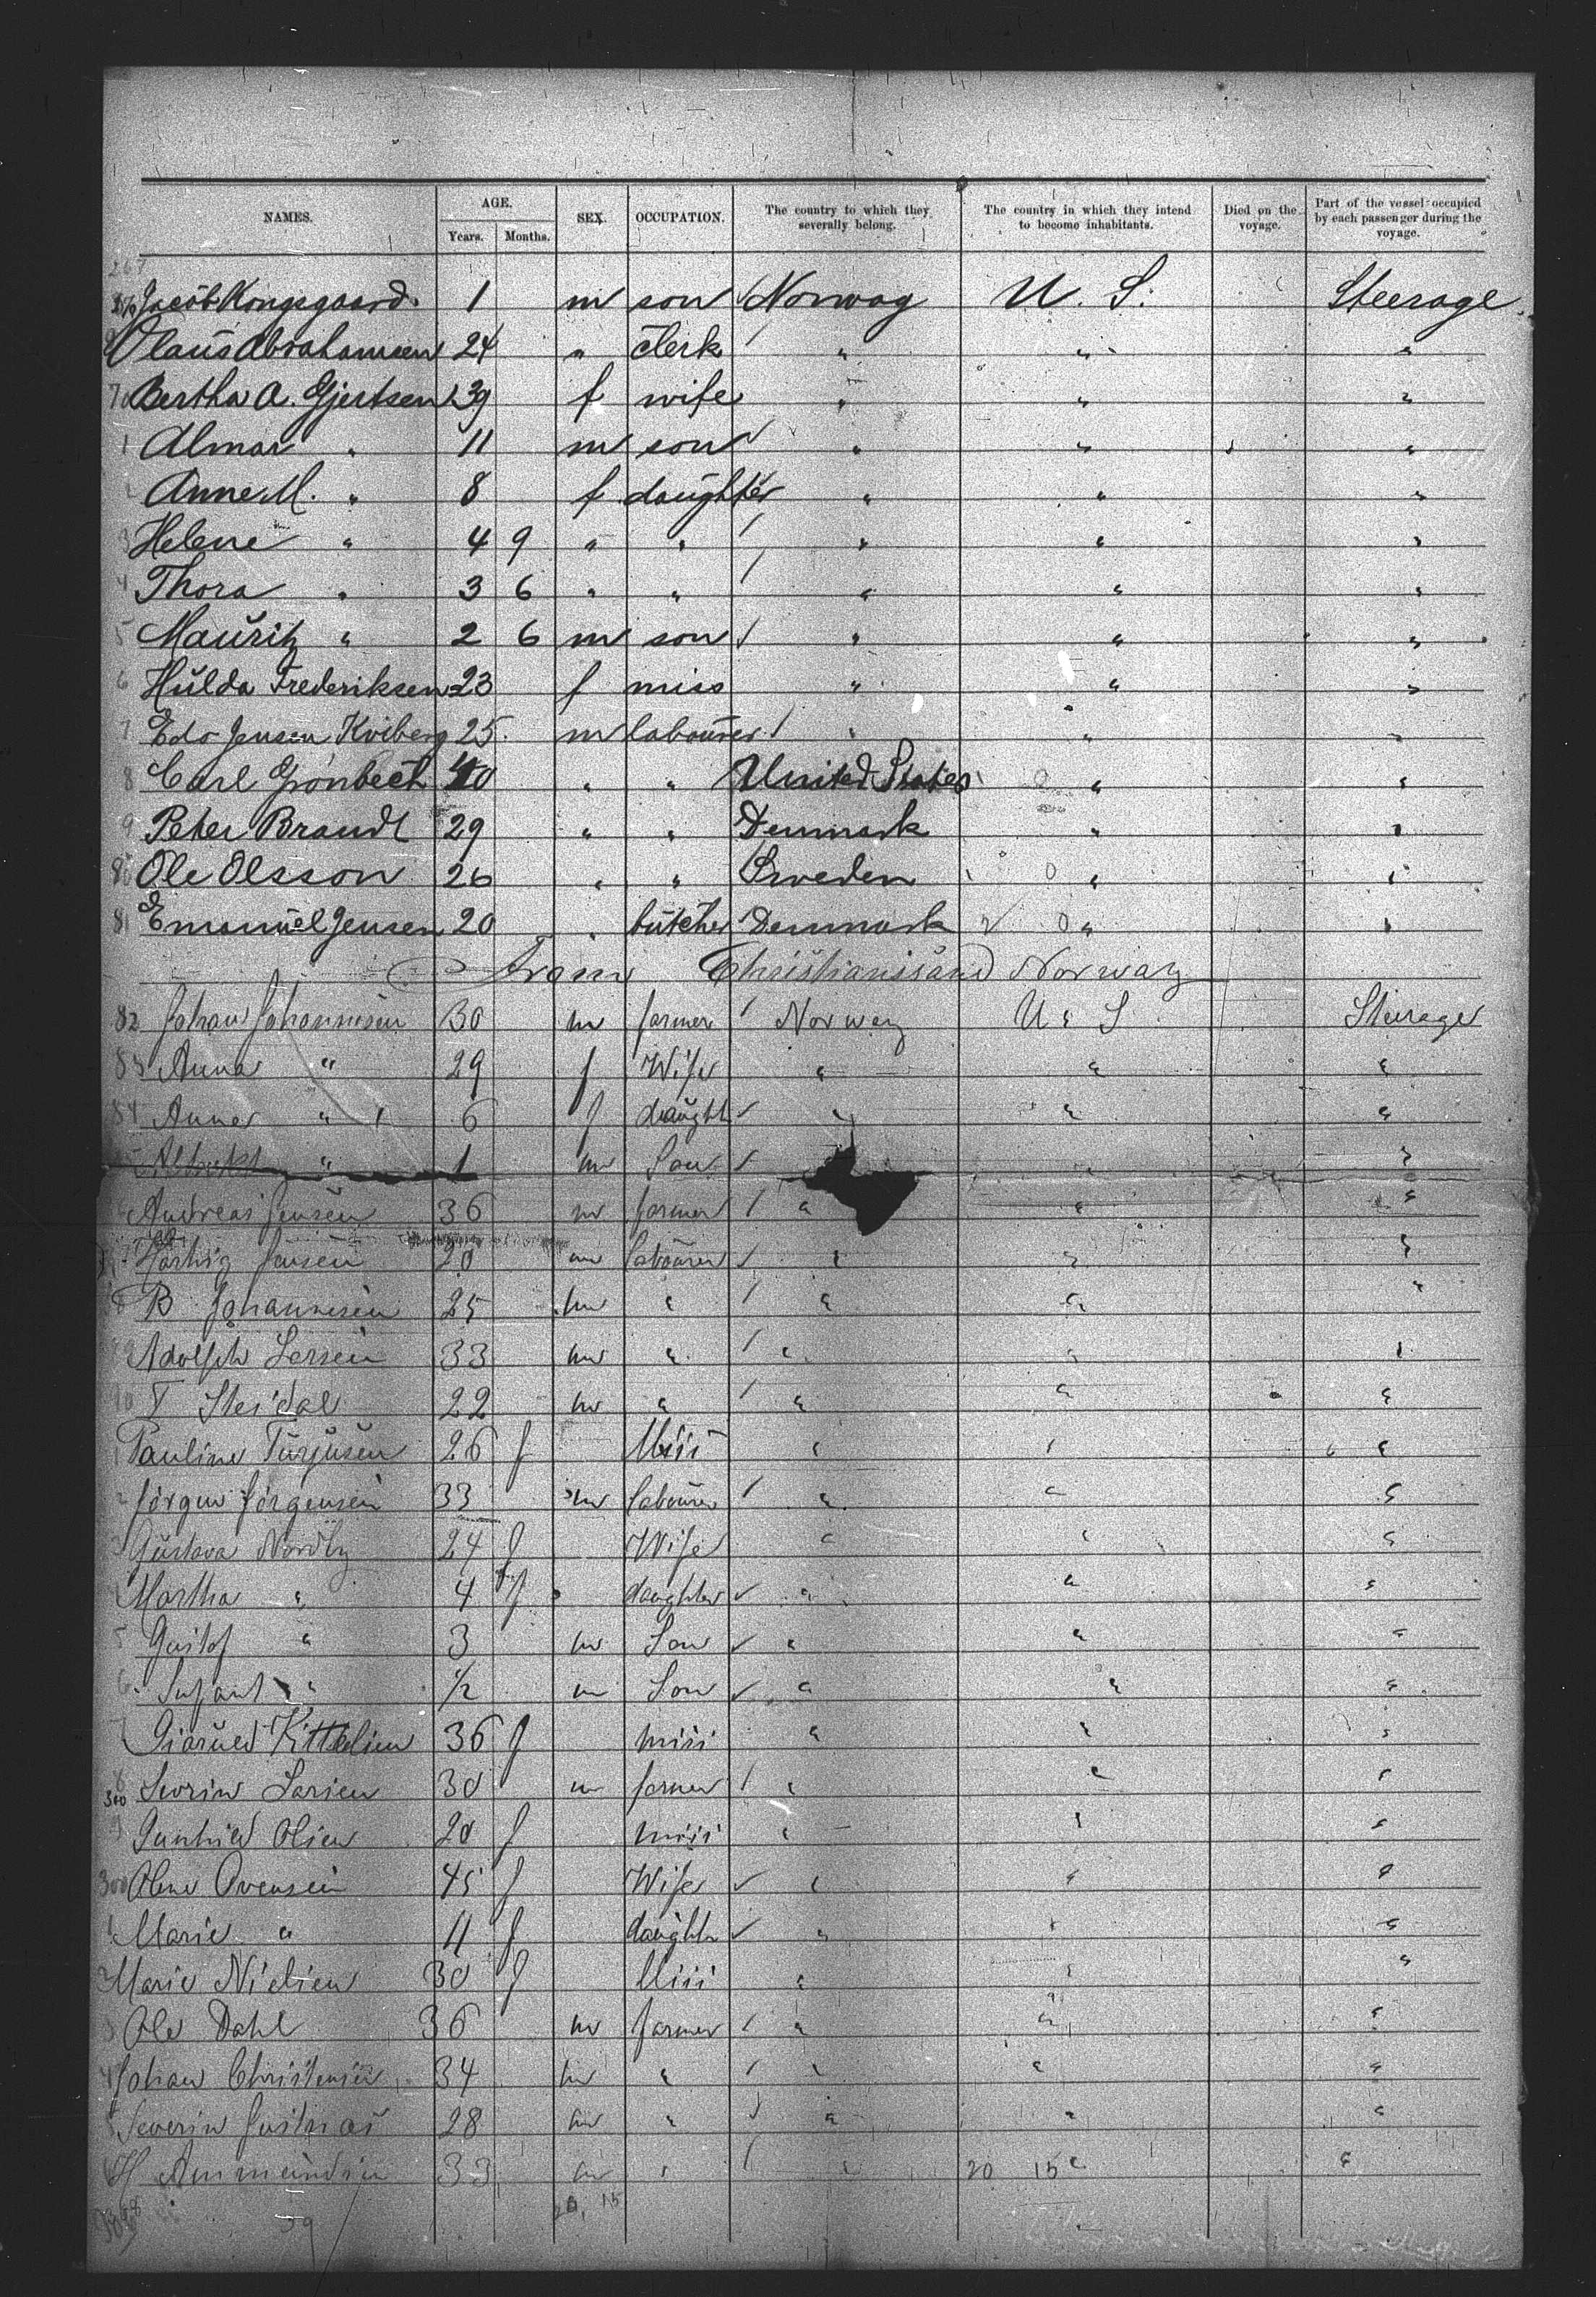 NAMES. AGE. Years. Months. SEX. OCCUPATION. The country to which they severally belong. The country in which they intend to become inhabitants. Died on the voyage. Part of the vessel occupied by each passenger during the voyage.
267
Jacob Kongsgaard. 1 m son Norway U. S. Steerage
Olaus Abrahamsen 24 " clerk " " "
70 Bertha A. Gjertsen 39 f wife " " "
1 Almar " 11 m son " " "
2 Anne M. " 8 f daughter " " "
3 Helene " 4 9 " " " " "
4 Thora " 3 6 " " " " "
5 Mauritz " 2 6 m son " " "
6 Hulda Frederiksen 23 f miss " " "
7 Edo Jensen Kviberg 25 m labourer " " "
8 Carl Grönbech 40 " " United States " "
9 Peter Brandt 29 " " Denmark " "
80 Ole Olsson 26 " " Sweden " "
81 Emanuel Jensen 20 " butcher Denmark " "
From Christianssand Norway
82 Johan Johannesen 30 m farmer Norway U S Steerage
83 Anna " 29 f Wife " " "
84 Anna " 6 f daught " " "
" 1 m Son " "
Andreas Jensen 36 m farmer " " "
7 Hartvig Jensen 20 m labourer " " "
8 B Johannesen 25 m " " " "
Adolph Larsen 33 m " " " "
90 T Steidal 22 m " " " "
1 Pauline Turjusen 26 f Miss " " "
2 Jörgen Jörgensen 33 m labourer " " "
3 Gustava Nordby 24 f Wife " " "
4 Martha " 4 f daughter " " "
5 Gustof " 3 m Son " " "
6 Infant " 1/2 m Son " " "
7 Kittelsen 36 f miss " " "
8 300 Sevrin Larsen 30 m farmer " " "
9 Gunhild Olsen 20 f miss " " "
300 Olene Ovensen 45 f Wife " " "
1 Marie " 11 f daughtr " " "
2 Marie Nielsen 30 f Miss " " "
3 Ole Dahl 36 m farmer " " "
4 Johan Christensen 34 m " " " "
5 Severin 28 m " " " "
H 33 m " " 20 15 " "
20, 15
39